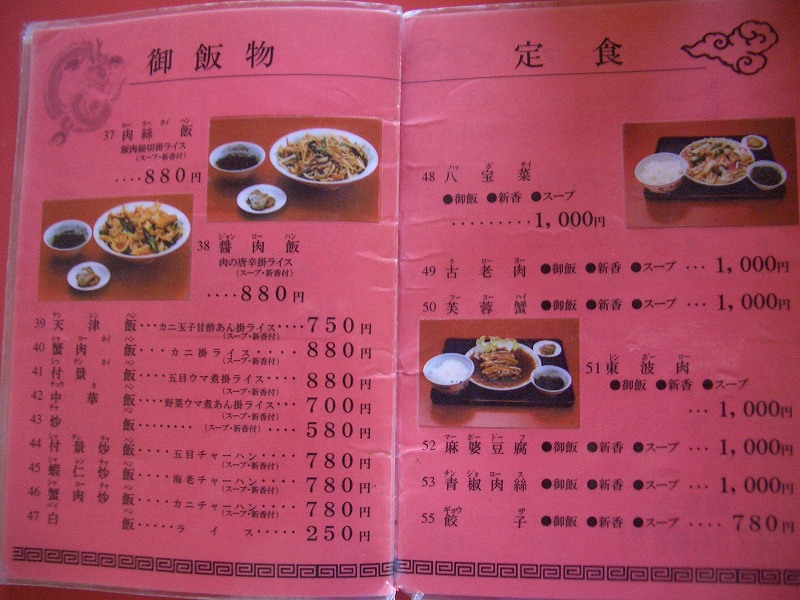 御飯物
ロー スー ホイ ハン
37 肉絲飯
豚肉細切掛ライス
(スープ・新香付)
‥‥880円
ジャン ロー ハン
38 醤肉飯
肉の唐辛掛ライス
(スープ・新香付)
‥‥880円
39 天津飯‥‥カニ玉子甘酢あん掛ライス‥‥750円
(スープ・新香付)
40 蟹肉飯‥‥カニ掛ライス‥‥‥880円
(スープ・新香付)
41 付景飯‥‥五目ウマ煮掛ライス‥‥880円
(スープ・新香付)
42 中華飯‥‥野菜ウマ煮あん掛ライス‥‥700円
(スープ・新香付)
43 炒飯‥‥‥‥(スープ・新香付)‥‥580円
44 付景炒飯 五目チャーハン‥‥780円
(スープ・新香付)
45 蝦仁炒飯‥‥海老チャーハン‥‥780円
(スープ・新香付)
46 蟹肉炒飯‥‥カニチャーハン‥‥780円
(スープ・新香付)
47 白飯‥‥‥ライス‥‥‥250円
定食
ハッ ポ サイ
48 八宝菜
●御飯 ●新香 ●スープ
‥‥‥‥1,000円
ク ロー ヨー
49 古老肉 ●御飯 ●新香 ●スープ ‥‥1,000円
フ ヨー ハイ
50 芙蓉蟹 ●御飯 ●新香 ●スープ ‥‥1,000円
トン ポー ロー
51 東波肉
●御飯 ●新香 ●スープ
‥‥1,000円
マー ボー ドー フ
52 麻婆豆腐 ●御飯 ●新香 ●スープ ‥‥1,000円
チン ジョ ロー ス
53 青椒肉絲 ●御飯 ●新香 ●スープ ‥‥1,000円
ギョウ ザ
55 餃子 ●御飯 ●新香 ●スープ ‥‥780円